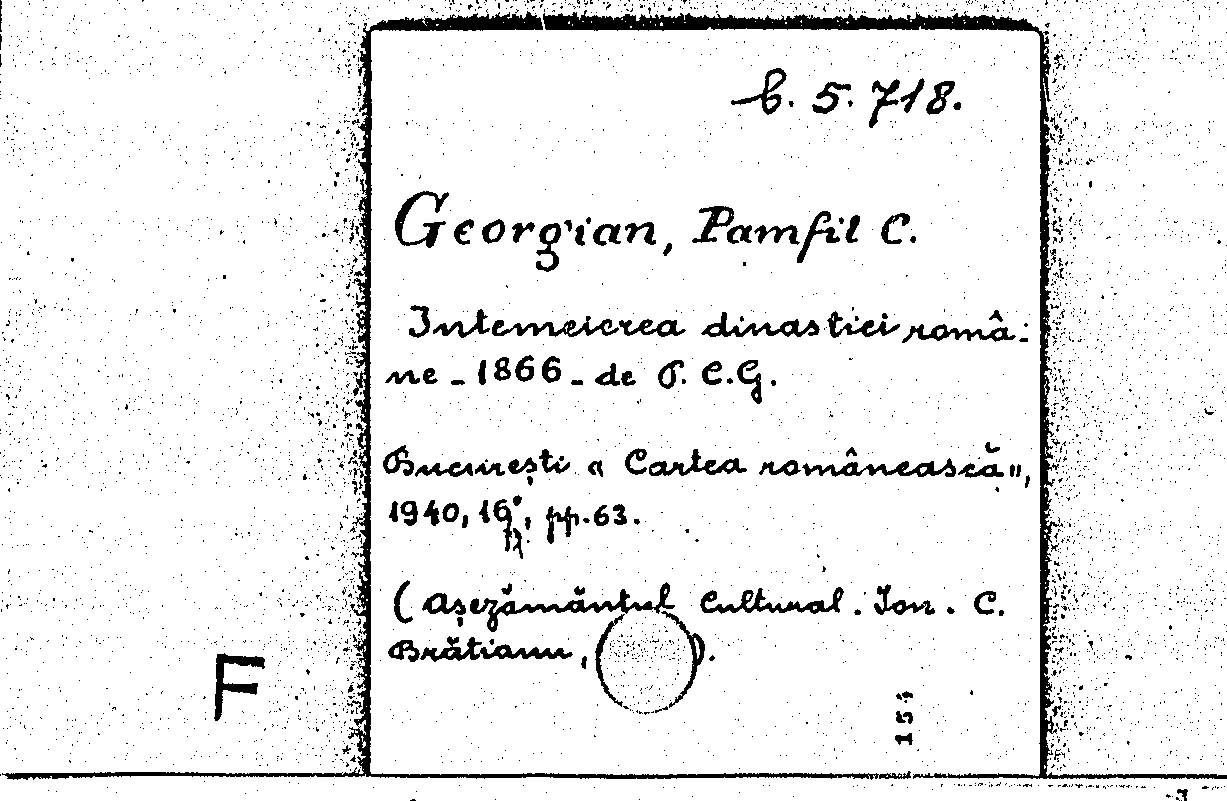 b. 5. 718.
Georgian, Pamfil C.
Intemeierea dinastiei româ-
ne - 1866 - de P. C. G.
București « Cartea românească »,
1940, 16°, pp. 63.
(Așezământul Cultural. Ion. C.
Brătianu, ).
F